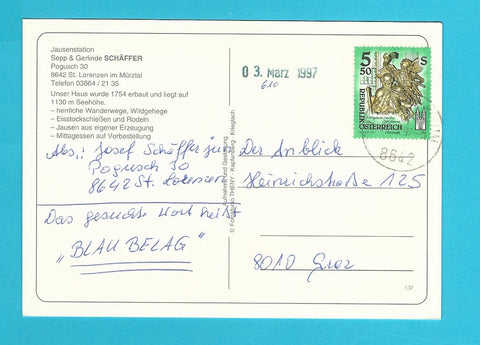 Jausenstation
Sepp & Gerlinde SCHÄFFER
Pogusch 30
8642 St. Lorenzen im Mürztal
Telefon 03864 / 21 35
Unser Haus wurde 1754 erbaut und liegt auf
1130 m Seehöhe.
– herrliche Wanderwege, Wildgehege
– Eisstockschießen und Rodeln
– Jausen aus eigener Erzeugung
– Mittagessen auf Vorbestellung
Abs.: Josef Schäffer jun
Pogusch 30
8642 St. Lorenzen
Das gesuchte Wort heißt
„BLAU BELAG"
© Foto THENY, Kapfenberg - Krieglach
03. März 1997
610
5 S
50
REPUBLIK
ÖSTERREICH
8642
Der Anblick
Heinrichstraße 125
8010 Graz